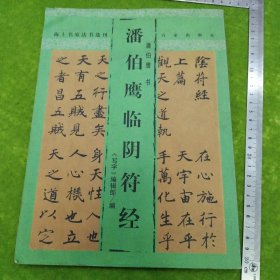 海上书家法书选刊
潘伯鹰 书
潘伯鹰临阴符经
《写字》编辑部 编
陰符經
上篇
觀天之道執
天之行盡矣
天有五賊見
之者昌五賊
在心施行於
天宇宙在乎
手萬化生乎
身天性人也
人心機也立
天之道以定